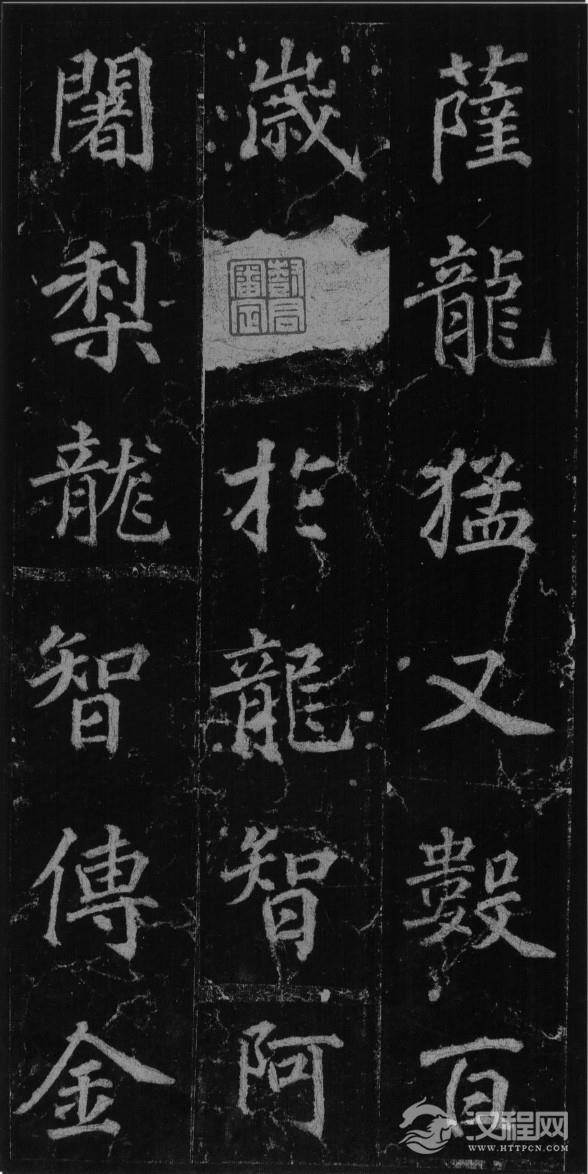 薩龍猛又數百
歲於龍智阿
闍梨龍智傳金
汉程网
WWW.HTTPCN.COM